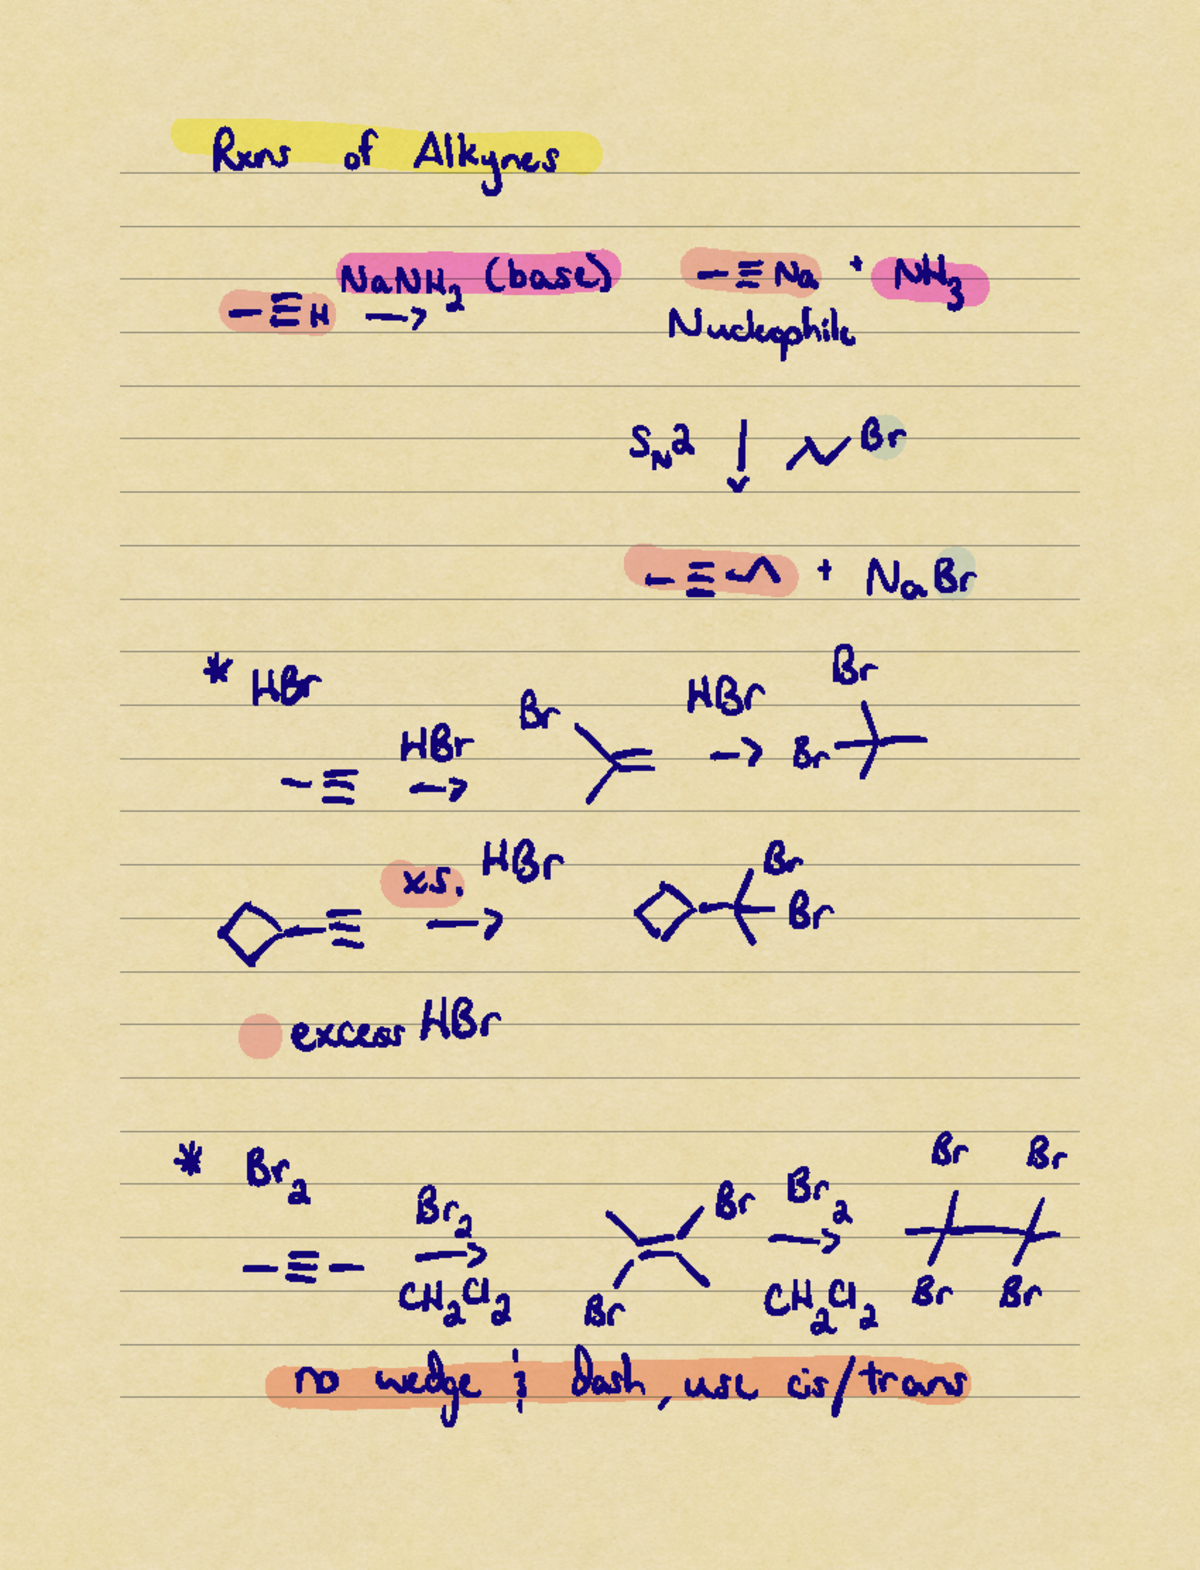 Rxns of Alkynes
-≡H NaNH₂ (base) → -≡Na + NH₃
Nucleophile
SN2 ↓ Br
-≡ + NaBr
* HBr
-≡ HBr → Br HBr → Br Br
≡ xs. HBr → Br Br
excess HBr
* Br₂
-≡- Br₂ → CH₂Cl₂ Br Br Br₂ → CH₂Cl₂ Br Br Br Br
no wedge & Dash, use cis/trans